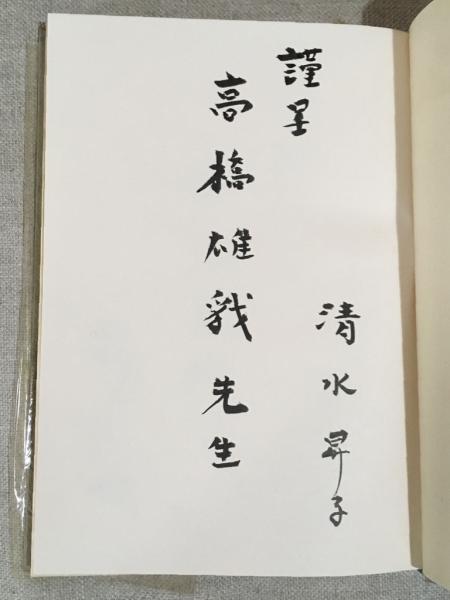 謹呈
清水昇子
高橋雄豺先生